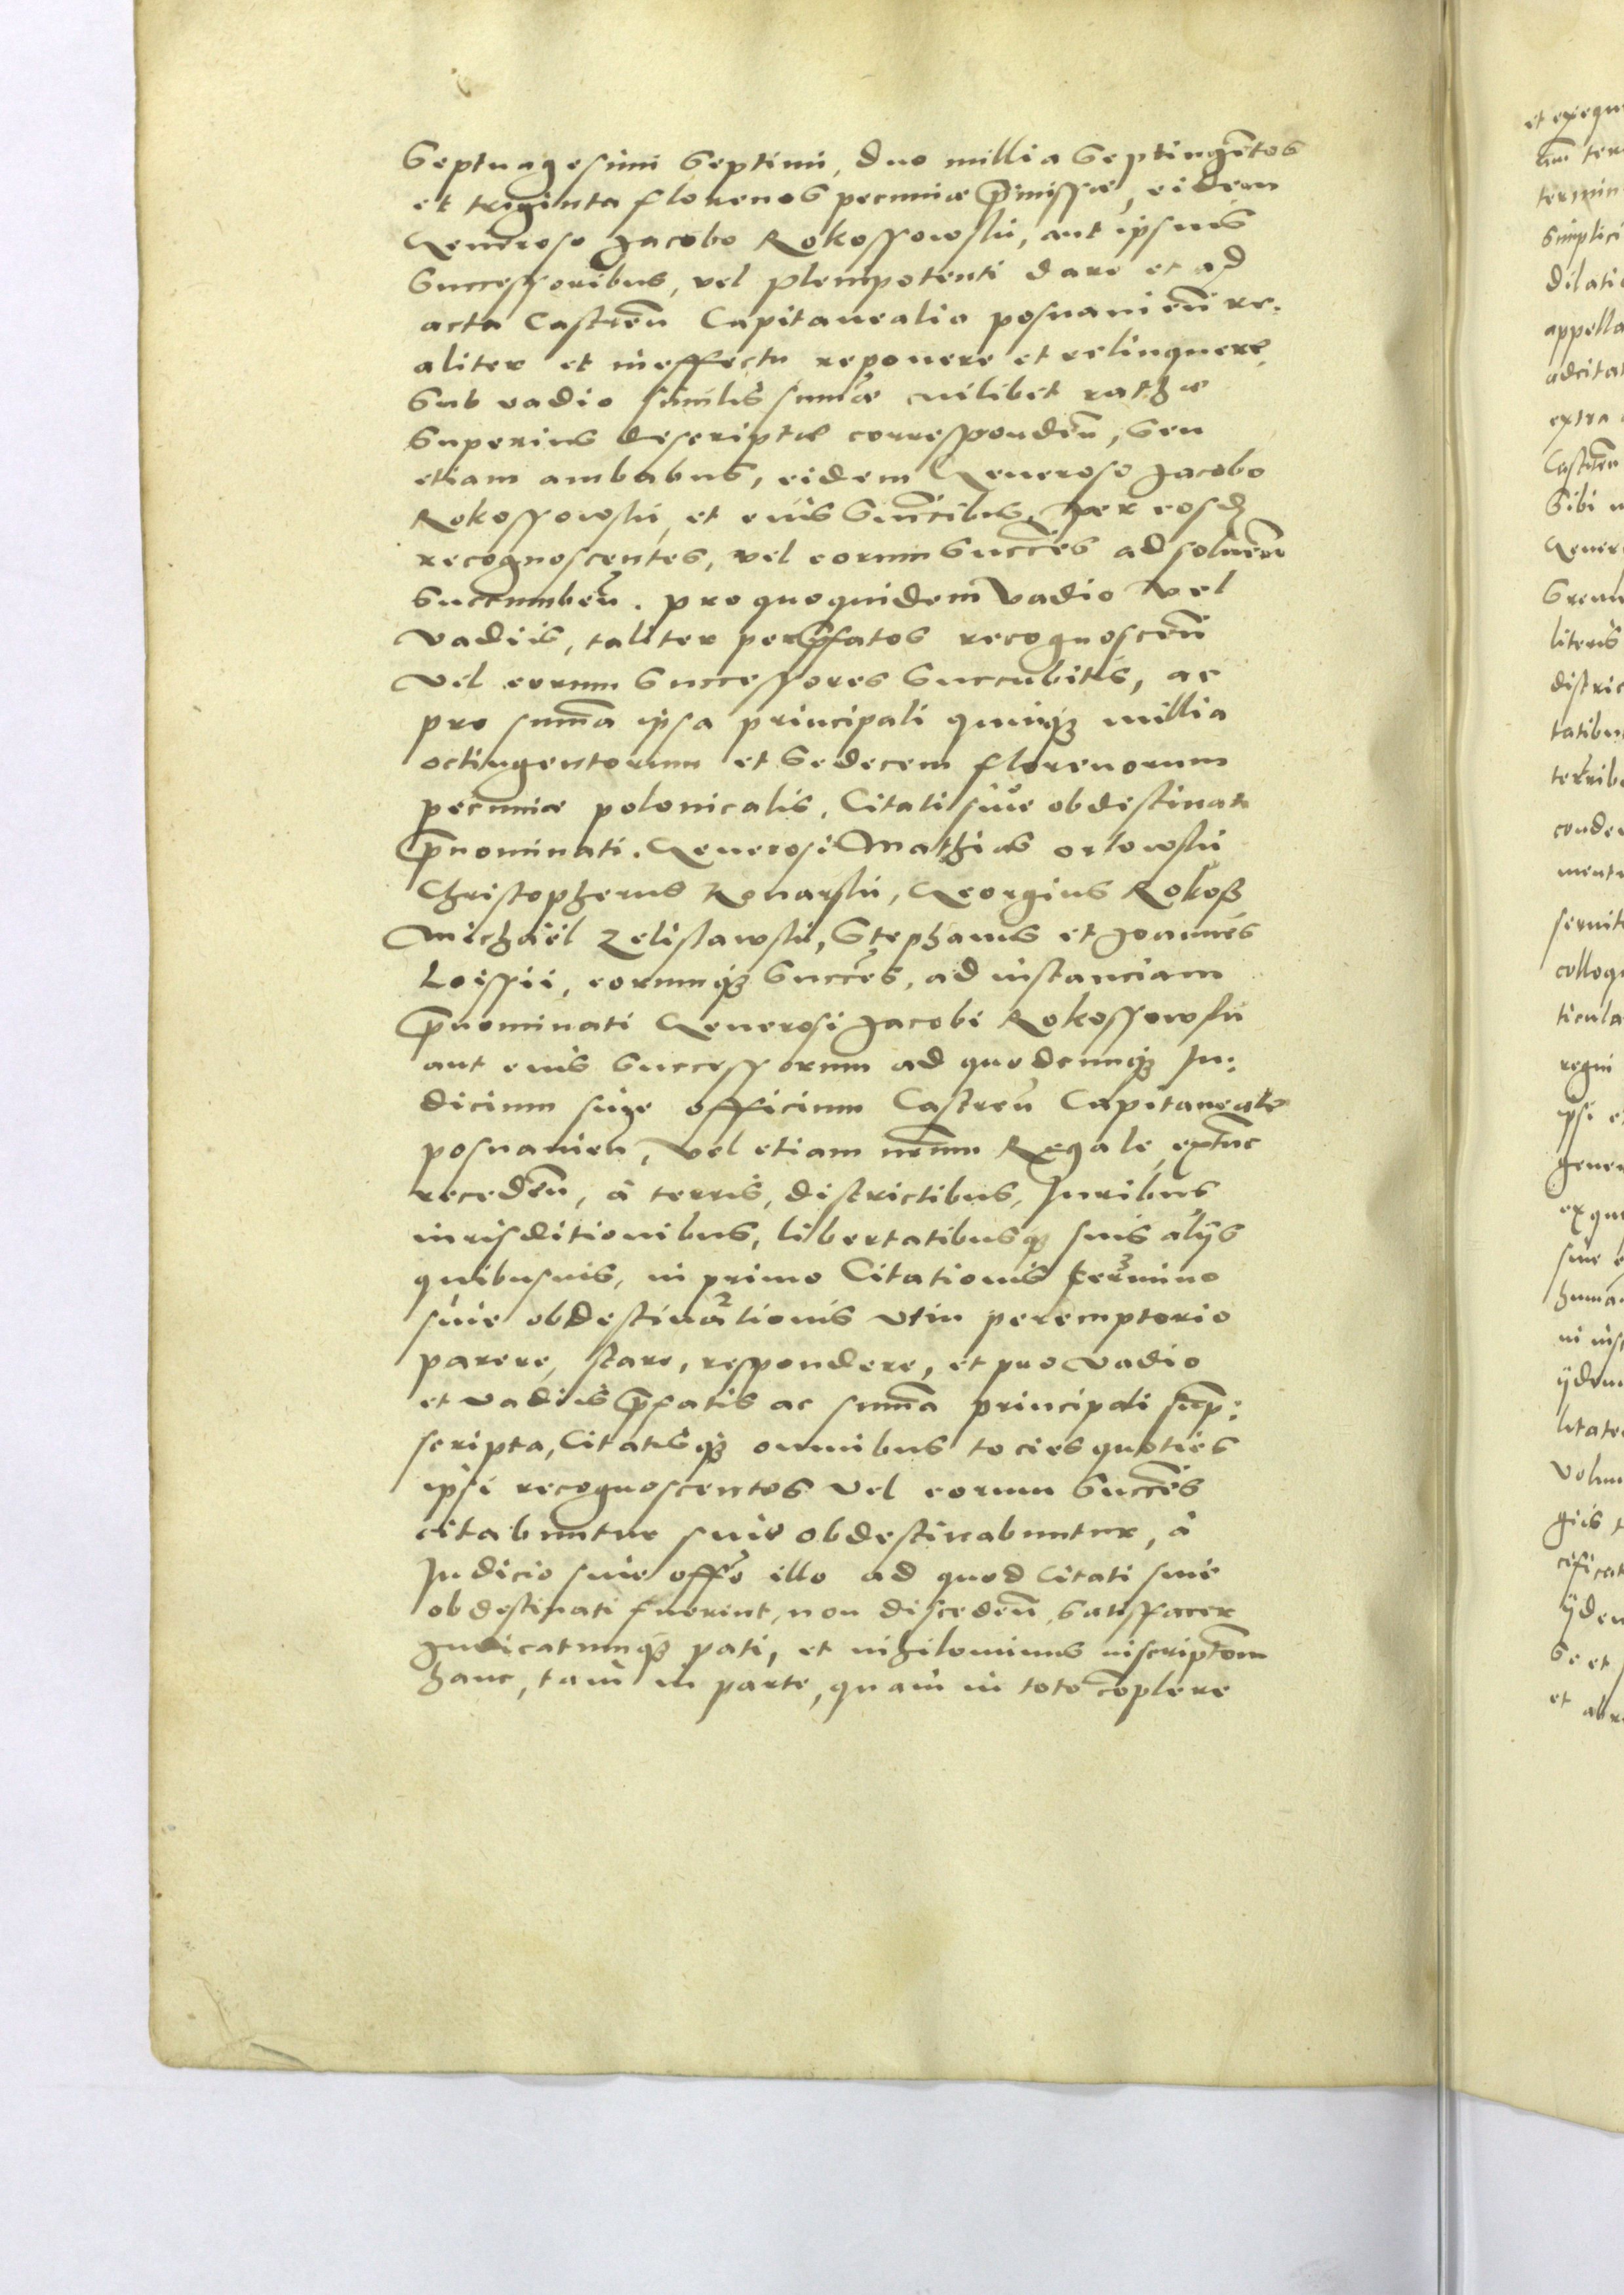 Septuagesimi Septimi, duo millia Septingētos
et triginta florenos pecuniæ p̄missæ, eidem
Generoso Jacobo Rokossowski, aut ipsius
Successoribus, vel plenipotenti dare et ad
acta Castreñ Capitanealia posnanieñ re:
aliter et in effectu reponere et relinquere,
Sub vadio similis sum̄æ cuilibet rathæ
Superius descriptæ correspondeñ, Seu
etiam ambabus, eidem Generoso Jacobo
Rokossowski, et eius Succ̄ribus, per eosd
recognoscentes, vel eorum Succ̄res ad solueñ
Succumbeñ. pro quoquidem Vadio vel
Vadiis, taliter per p̄fatos recognosceñ
Vel eorum Successores Succubitis, ac
pro sum̄a ipsa principali quinq3 millia
octingentorum et Sedecem florenorum
pecuniæ polonicalis, Citati siue obdestinati
p̄nominati. Generosi Mathias orlowski
Christopherus Konarski, Georgius Rokoß
Michael Zelislawski, Stephanus et Joannes
Loissii, eorumq3 Succ̄res, ad instanciam
p̄nominati Generosi Jacobi Rokossowski
aut eius Successorum ad quodcunq3 Ju:
dicium siue officium Castreñ Capitaneale
posnanieñ, Vel etiam Regale, extunc
recedeñ, à terris, districtibus, Juribus
iurisditionibus, libertatibusq3 suis alijs
quibusuis, in primo Citationis termino
siue obdestinationis vtin peremptorio
parere, stare, respondere, et pro Vadio
et Vadiis p̄fatis ac sum̄a principali sup̄:
scripta, Citatisq3 omnibus tocies quoties
ipsi recognoscentes Vel eorum Succ̄res
citabuntur siue obdestinabuntur, à
Judicio siue off̄o illo ad quod Citati siue
obdestinati fuerint, non discedeñ, satisfacer
Judicatumq3 pati, et nihilominus inscriptōem
hanc, tam in parte, quàm in toto cōplere